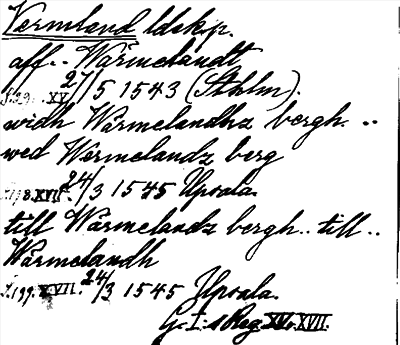 Vermland ldskp.
aff .. Wärmelandt
XV. 27/5 1543 (Sthlm).
widh Wärmelandhz bergh. ..
wed Wermelandz berg
XVII. 24/3 1545 Upsala.
till Wärmelandz bergh .. till ..
Wärmelandh
s. 199. XVII. 24/3 1545 Upsala.
G. I:s Reg. XV, XVII.